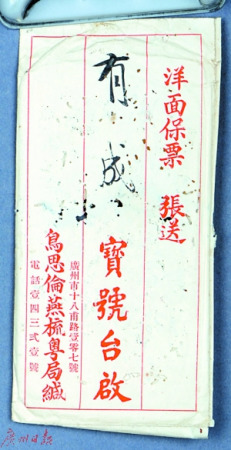 洋面保票 張送
有成
寶號台啟
廣州市十八甫南路壹零七號
鳥思倫燕梳粵局緘
電話壹四三弍壹號
廣州日报